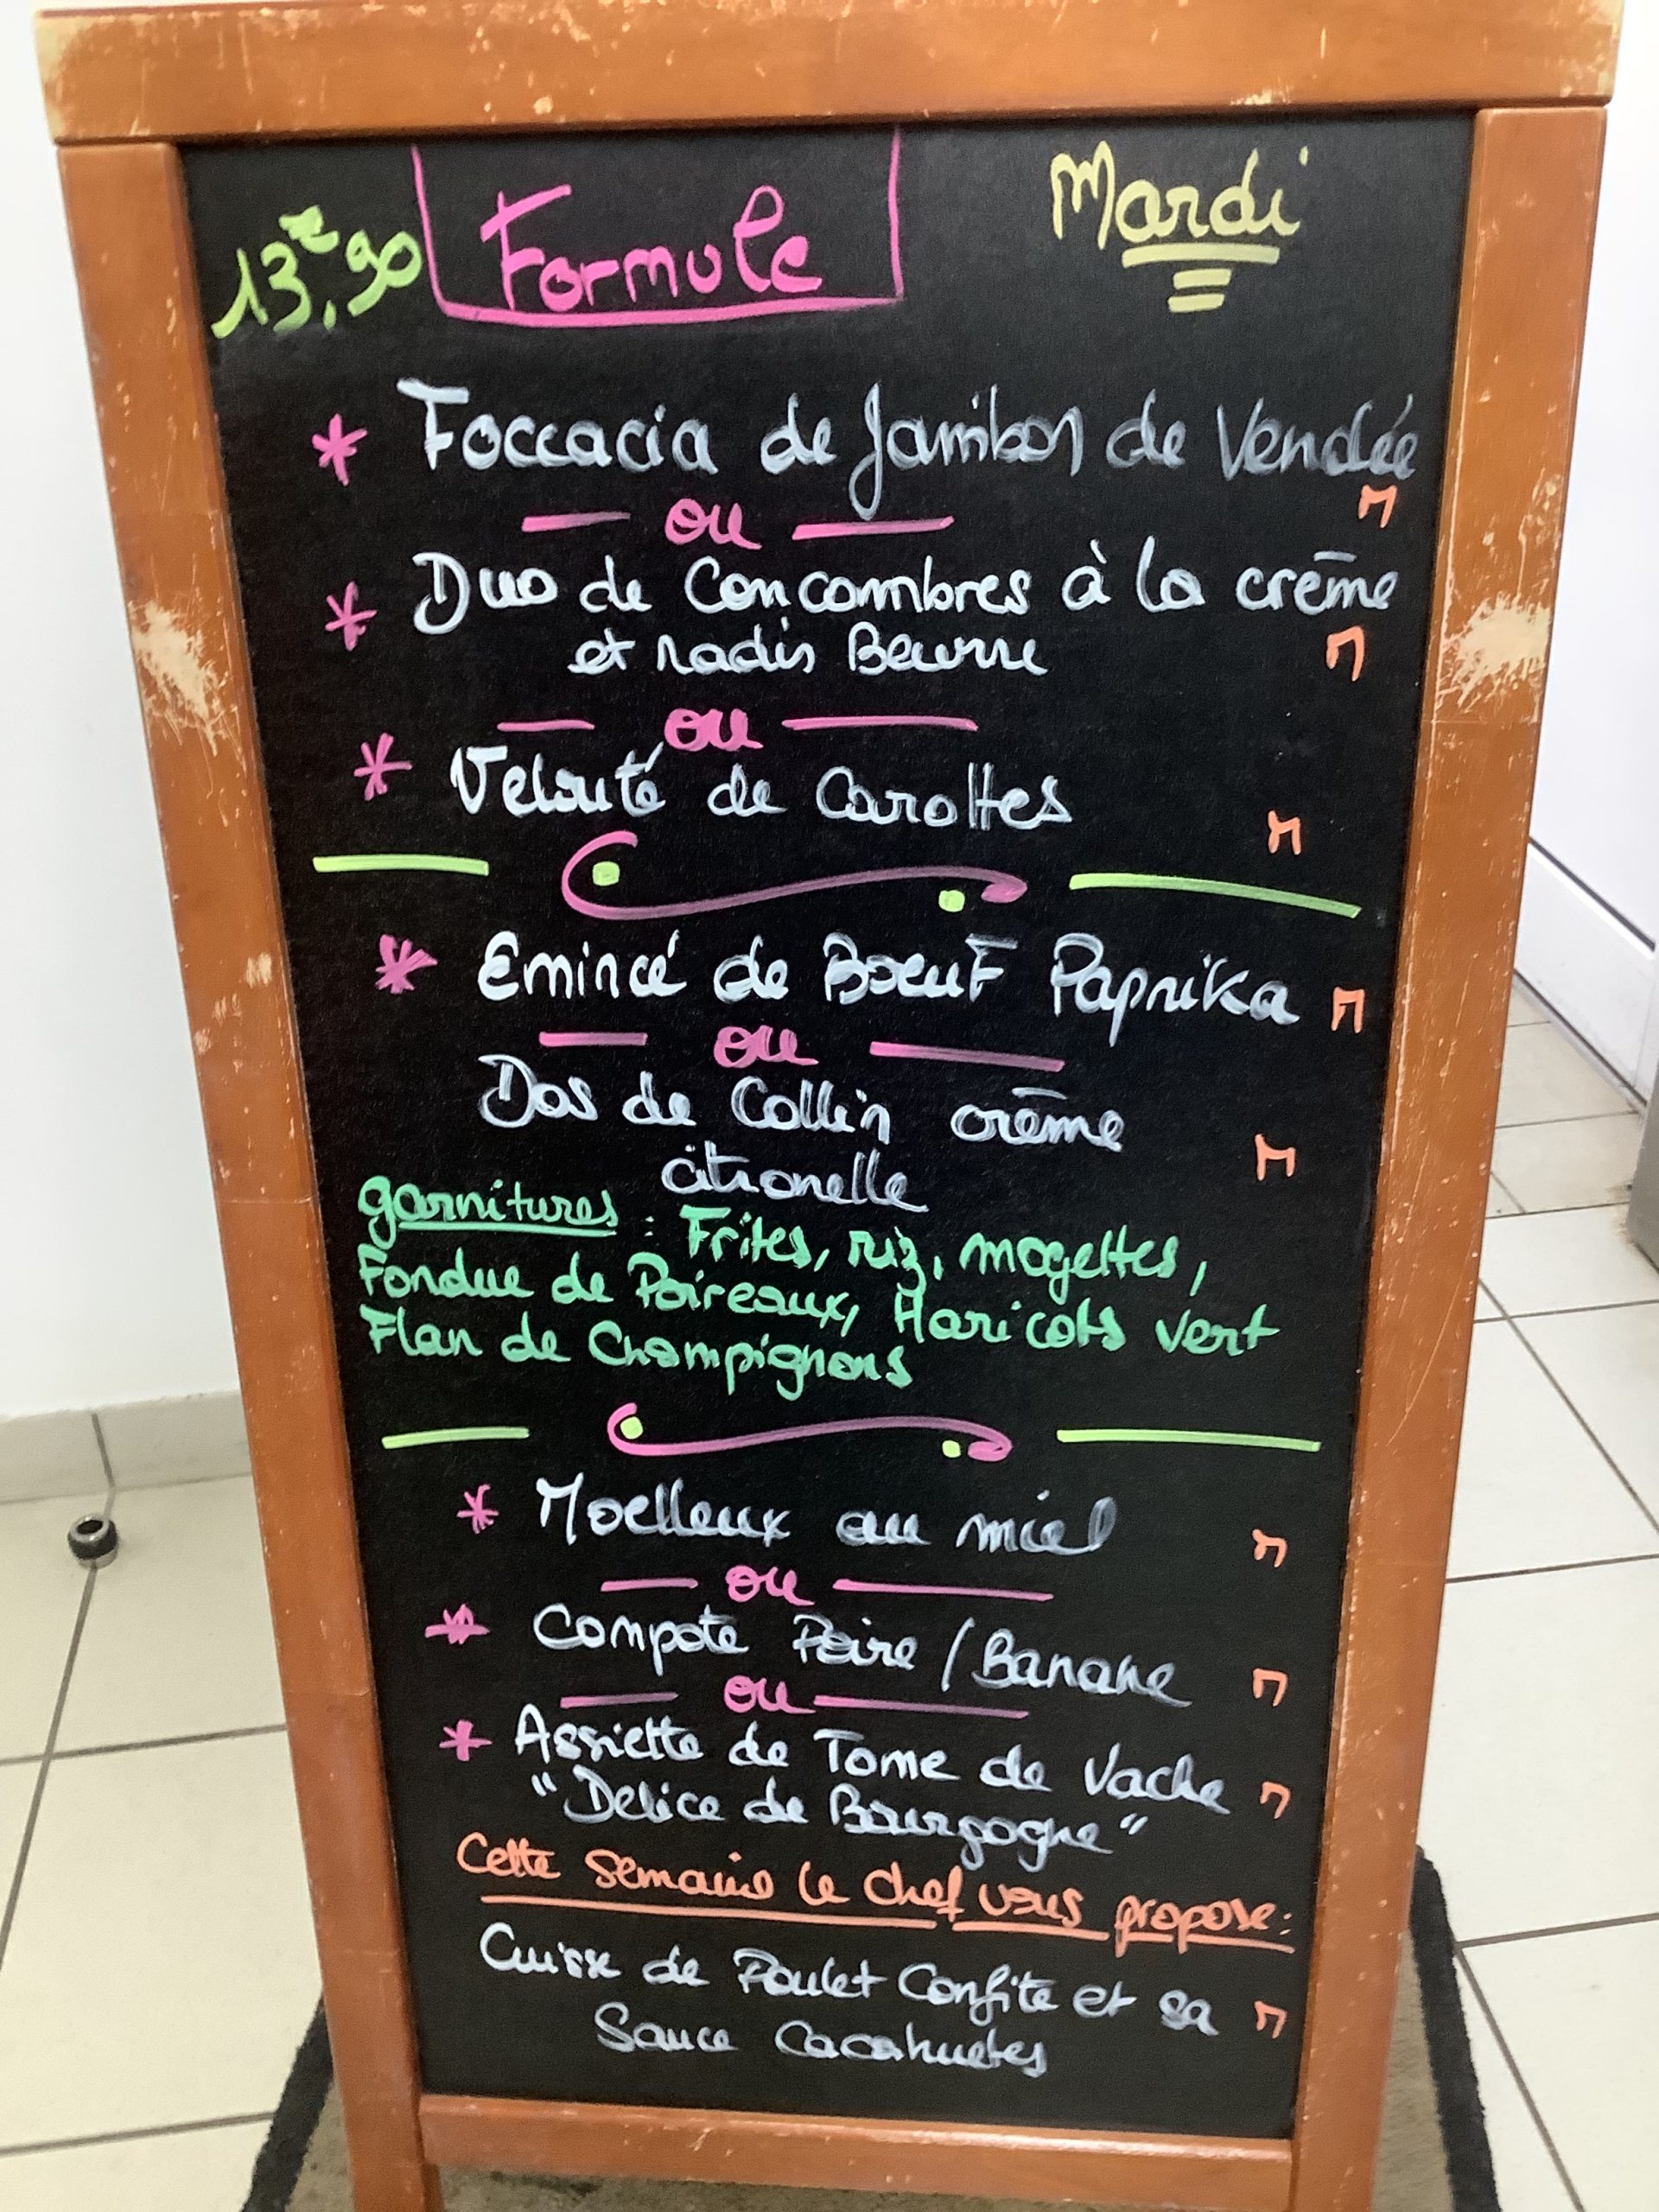 13€,90 Formule Mardi
* Foccacia de Jambon de Vendée
ou
* Duo de Concombres à la crème
et radis Beurre
ou
* Velouté de Carottes
* Emincé de Boeuf Paprika
ou
Dos de Collin crème
citronelle
garnitures : Frites, riz, mogettes,
Fondue de Poireaux, Haricots vert
Flan de Champignons
* Moelleux au miel
ou
* Compote Poire / Banane
ou
* Assiette de Tome de Vache
"Délice de Bourgogne"
Cette semaine le chef vous propose :
Cuisse de Poulet Confite et sa
Sauce Cacahuetes